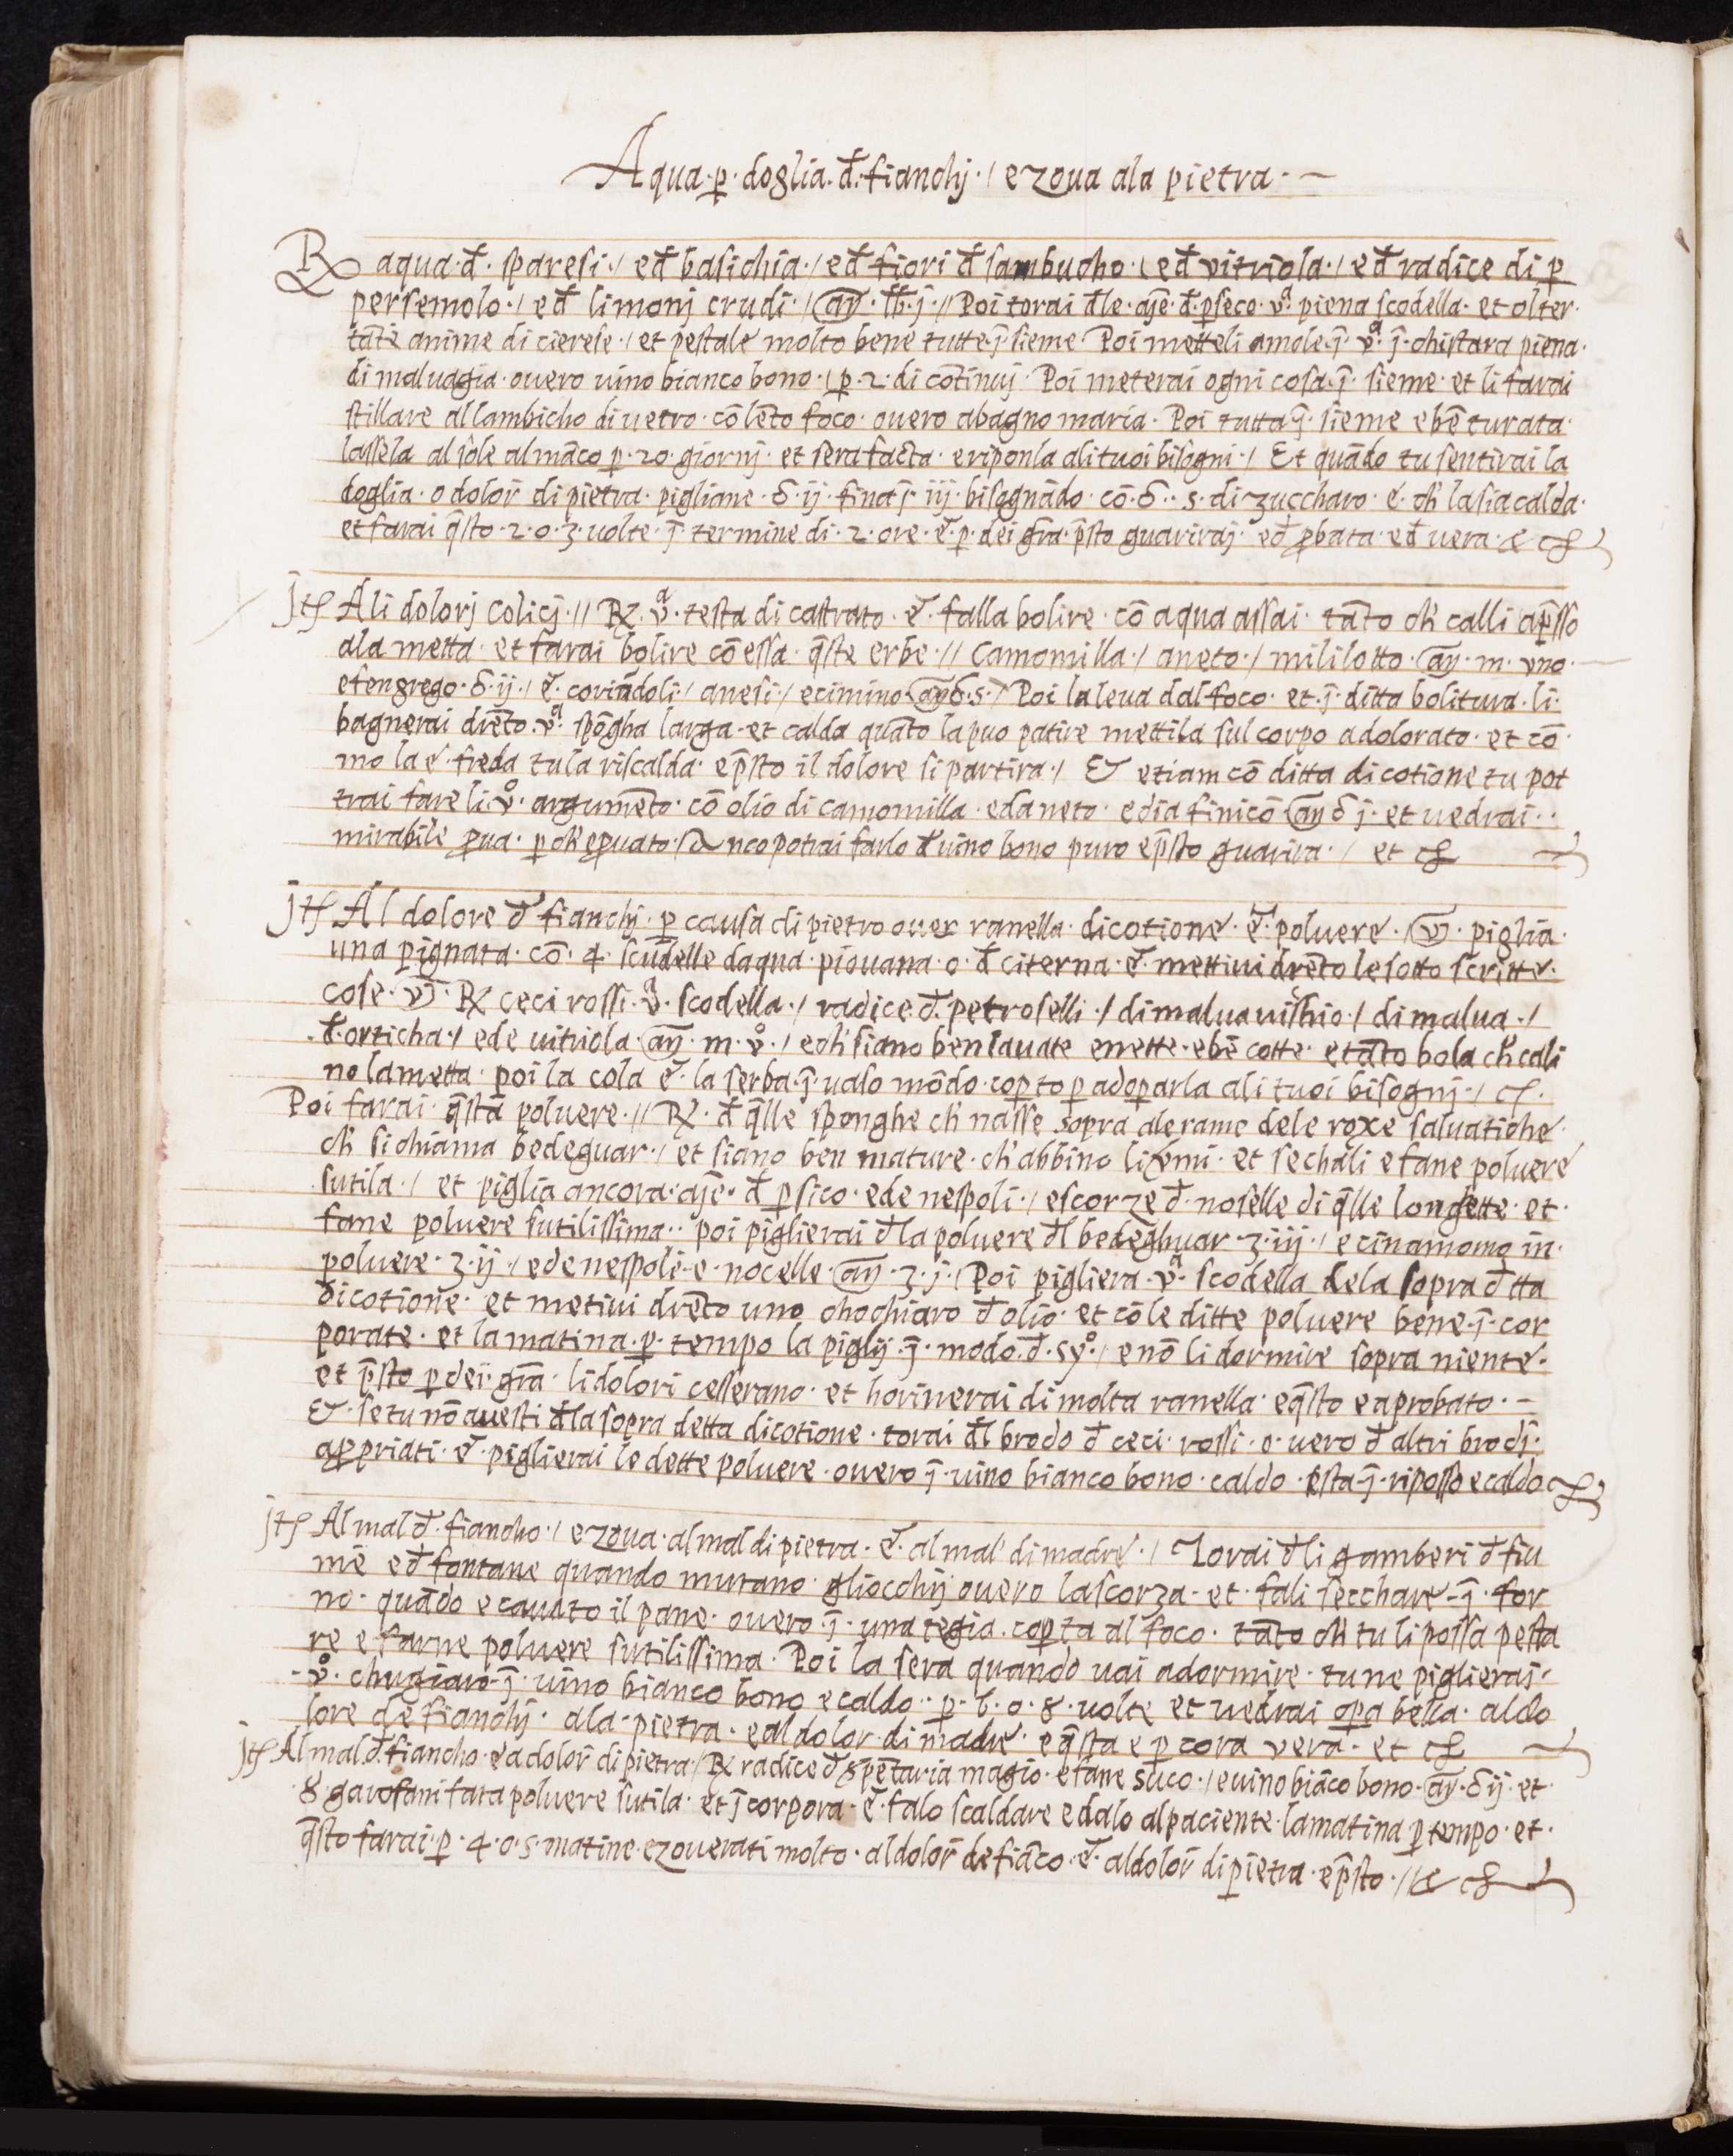 Aqua · ꝑ · doglia · đ · fianchj · / e zoua ala pietra · —
℞ aqua · đ · sparesi · / eđ basichia · / eđ fiori đ sambucho · / eđ vitriola · / eđ radice di ꝑ
persemolo · / eđ limonj crudi · / añ · lb̄ · j · // Poi torai đle · aīe · đ · ꝑseco · vª · piena scodella · et olter ·
tāte anime di cierese · / et pestale molto bene tutte · ī · sieme Poi metteli amole · ī · vª · ī · chistara piena ·
di maluagia · ouero uino bianco bono · / ꝑ · 2 · di cōtinuj · Poi meterai ogni cosa · ī · sieme · et li farai
stillare al lambicho di uetro · cō lēto foco · ouero abagno maria · Poi tutta · ī · sieme e bē turata ·
lassela al sole almāco ꝑ · 20 · giornj · et sera facta · e riponla ali tuoi bisogni · / Et quādo tu sentirai la
doglia · o dolor̄ di pietra · pigliane · δ · ij · fina j̄ · iij · bisognādo · cō · δ · · s · di zuccharo · e · ch' la sia calda ·
et farai q̄sto · 2 · o · 3 · uolte · ī · termine di · 2 · ore · e · ꝑ · dei gr̄a · p̄sto guarirāj · eđ ꝓbata · eđ uera · &
jtſ Ali dolorj colicj · // ℞ · vª · testa di castrato · e · falla bolire · cō aqua assai · tāto ch' calli ap̄sso
ala metta · et farai bolire cō essa · q̄ste erbe · // Camomilla · / aneto · / mililotto · añ · m · vno ·
e fengrego · δ · ij · / e · coriādoli · / anesi · / e cimino · añ δ · s · / Poi la leua dal foco · et · ī · ditta bolitura · li ·
bagnerai drēto · vª · spōgha larga · et calda quāto la puo patire mettila sul corpo adolorato · et cō ·
mo la e · freda tu la riscalda · e p̄sto il dolore si partira · / Et etiam cō ditta dicotione tu pot
trai fare li · v° · argumēto · cō olio di camomilla · ed aneto · e dia finicō añ δ j · et uedrai · ·
mirabile ꝓua · ꝑ ch' e ꝓuato · / Anco potrai farlo đ uino bono puro e p̄sto guarira · / et
jtſ Al dolore đ fianchj · ꝑ causa di pietro ouer ranella · dicotione · e · poluere · / v̄ · piglia ·
una pignata · cō · 4 · scudelle daqua · piouana · o · đ citerna · e · mettiui drēto le sotto scritte ·
cose · v̄ · ℞ ceci rossi · vª · scodella · / radice · đ · petroselli · / di maluauischio · / di malua · /
· đ · orticha · / ede uitriola · añ · m · v° · / e ch' siano ben lauate e nette · e bē cotte · e tāto bola ch' cali
no la metta · poi la cola e · la serba · ī · uaso mōdo · coꝑto ꝑ adoꝑarla ali tuoi bisognj · /
Poi farai · q̄sta poluere · // ℞ · đ q̄lle sponghe ch' nasse sopra ale rame dele roxe saluatiche ·
ch' si chiama bedeguar · / et siano ben mature · ch' abbino li semi · et sechāli e fane poluere
sutila · / et piglia ancora · aīe · đ ꝑsico · ede nespoli · / e scorze đ · noselle di q̄lle longette · et ·
fane poluere sutilissima · · poi piglierai đ la poluere đl bedeghuar · 3 · iij · / e cinamomo in ·
poluere · 3 · ij · / ede nespoli · e · nocelle · añ · 3 · j · / Poi pigliera · vª · scodella dela sopra đtta
dicotione · et metiui drēto uno chochiaro đ olio · et cō le ditte poluere bene · ī · cor
porate · et la matina · ꝑ · tempo la piglij · ī · modo · đ · sy° · / e nō li dormire sopra niente ·
et p̄sto ꝑ dei · gr̄a · li dolori cesserano · et horinerai di molta ranella · e q̄sto e aprobato · –
Et · se tu nō auesti đ la sopra detta dicotione · torai đl brodo đ ceci · rossi · o · uero đ altri brodj ·
apꝓpriati · e · piglierai le dette poluere · ouero · ī · uino bianco bono · caldo · e sta · ī · riposso e caldo
jtſ Al mal đ · fiancho · / e zoua · al mal di pietra · e · al mal di madre · / Torai đ li gamberi đ fiu
me eđ fontane quando mutano gliocchij ouero la scorza · et · fali secchare · ī · for
no · quādo e cauato il pane · ouero · ī · una tegia · coꝑta al foco · tāto ch' tu li possa pesta
re e farne poluere sutilissima · Poi la sera quando uai adormire · tu ne piglierai ·
· v° · chugiaro · ī · uino bianco bono e caldo · · ꝑ · 6 · o · 8 · uolte et uedrai oꝑa bella · aldo
lore de fianchj · ala · pietra · e al dolor di madre · e q̄sta e ꝑ cora vera · et
jtſ Al mal đ fiancho · e a dolor̄ di pietra / ℞ radice đ sꝑētaria magio · e fane suco · / e uino biāco bono · añ · δ ij · et ·
· 8 · garofani fata poluere sutila · et ī corpora · e · falo scaldare e dalo al paciente · la matina ꝑ tempo · et ·
q̄sto farai · ꝑ · 4 · o · 5 · matine · e zouerati molto · al dolor̄ de fiāco · e · al dolor̄ di pietra · e p̄sto · // &